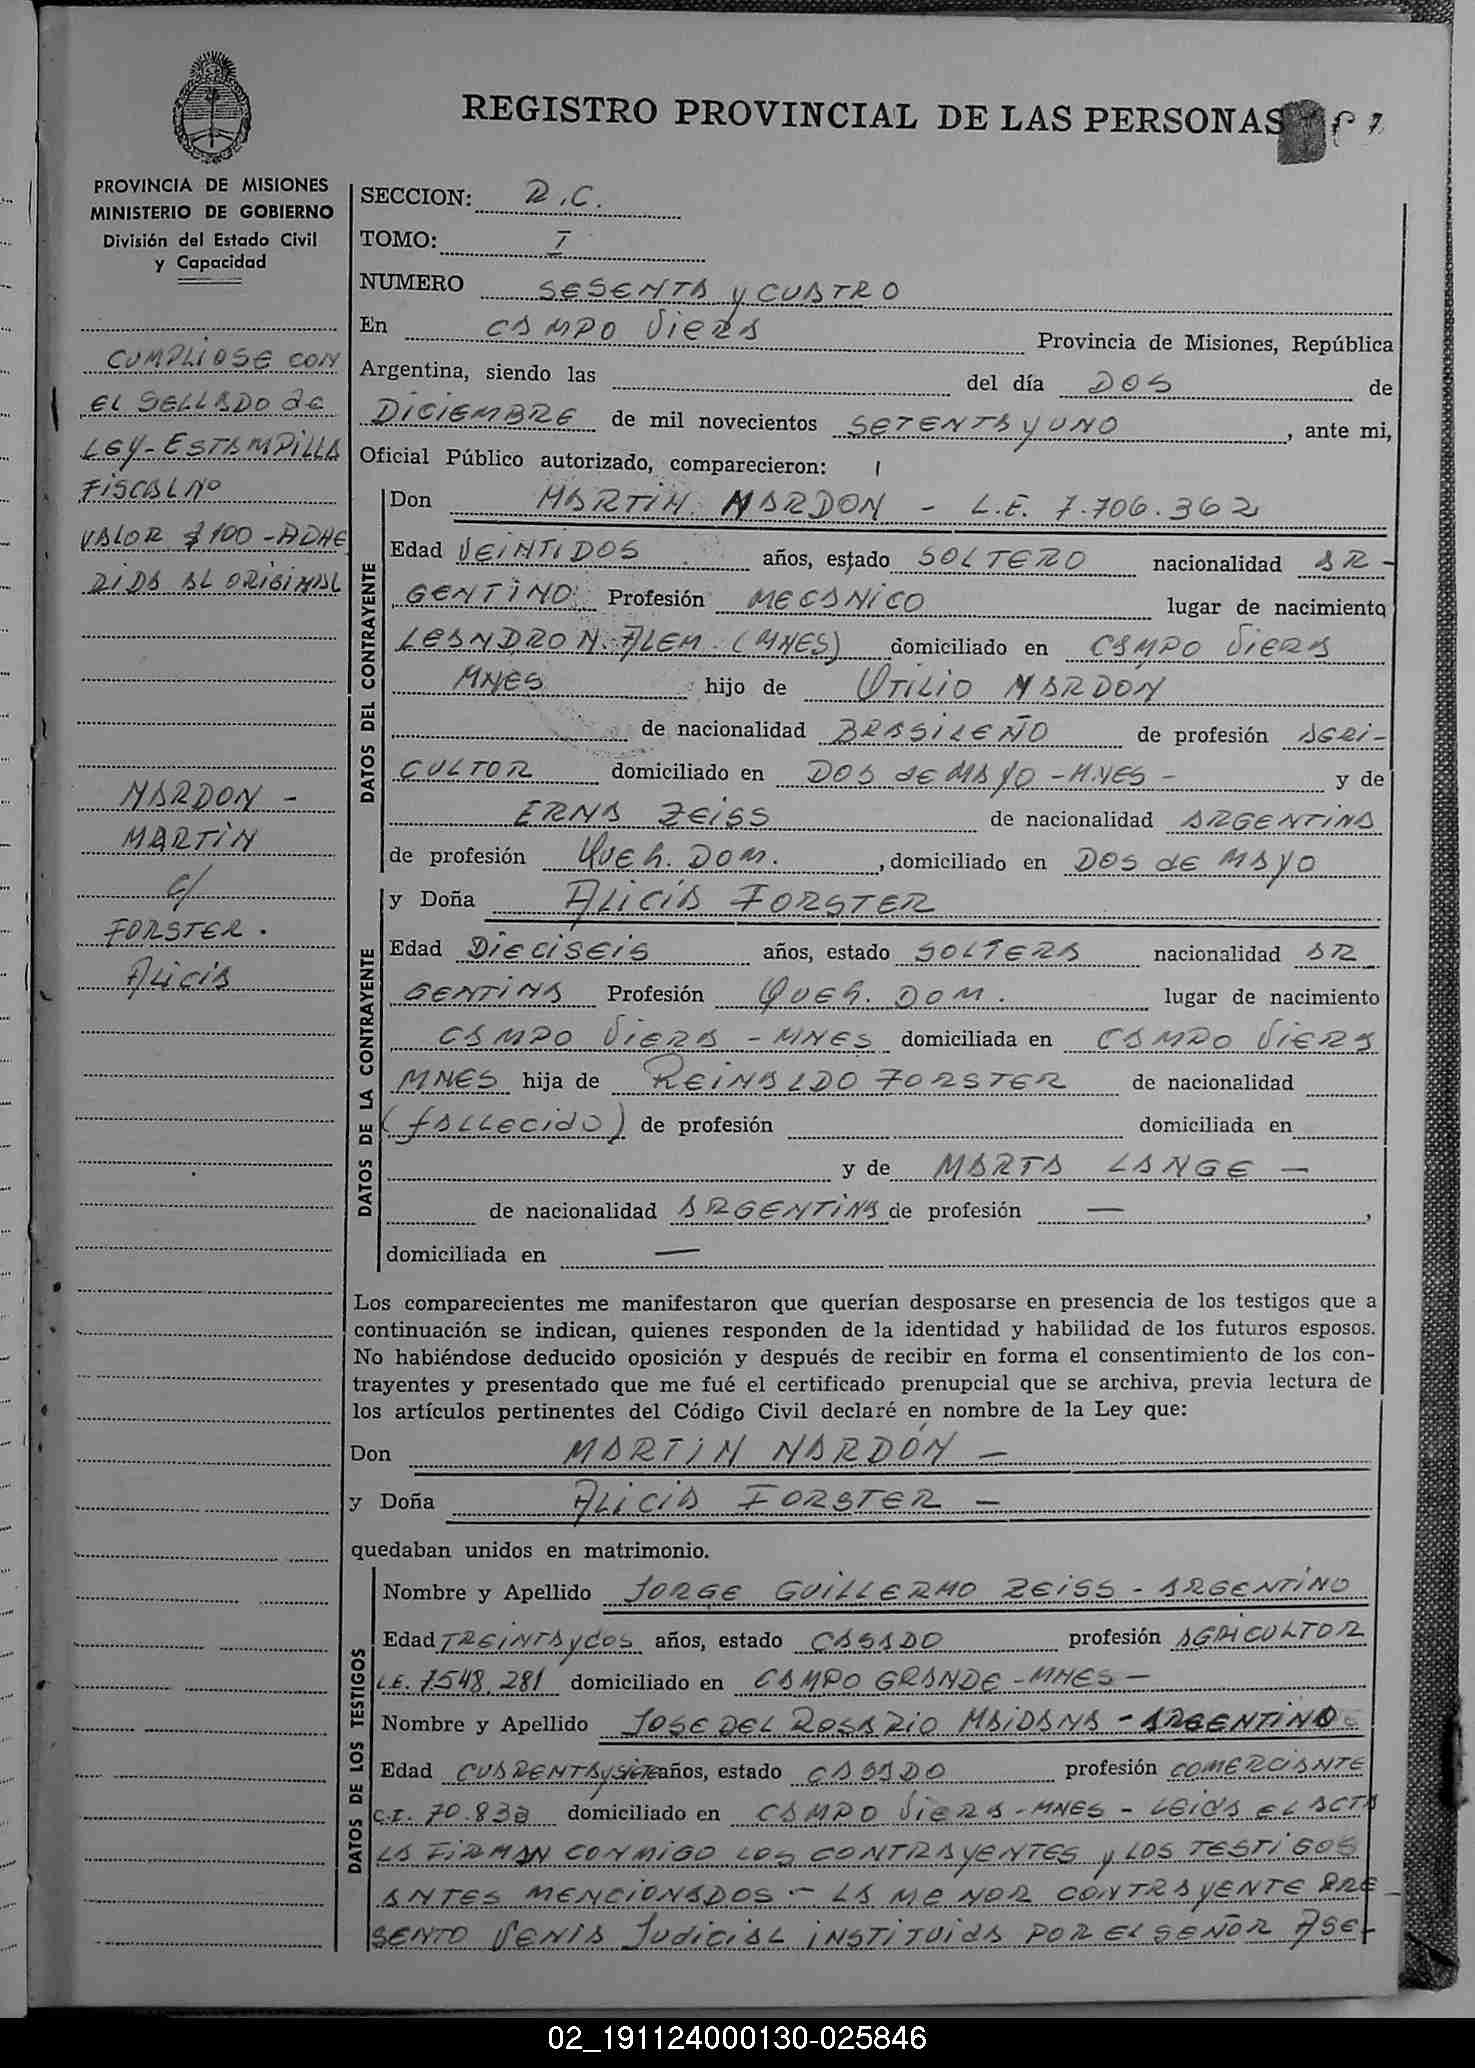 REGISTRO PROVINCIAL DE LAS PERSONAS
PROVINCIA DE MISIONES
MINISTERIO DE GOBIERNO
División del Estado Civil
y Capacidad
CUMPLIOSE CON
EL SELLADO de
LEY-ESTAMPILLA
FISCAL Nº
VALOR $ 100 - ADHE
RIDA AL ORIGINAL
NARDON -
MARTIN
c/
FORSTER.
ALICIA
SECCION: R.C.
TOMO: I
NUMERO SESENTA y CUATRO
En CAMPO VIERA Provincia de Misiones, República
Argentina, siendo las del día DOS de
DICIEMBRE de mil novecientos SETENTA y UNO, ante mi,
Oficial Público autorizado, comparecieron:
DATOS DEL CONTRAYENTE
Don MARTIN NARDON - L.E. 7.706.362
Edad VEINTIDOS años, estado SOLTERO nacionalidad AR-
GENTINO Profesión MECANICO lugar de nacimiento
LEANDRO N. ALEM. (MNES) domiciliado en CAMPO VIERA
MNES hijo de OTILIO NARDON
de nacionalidad BRASILEÑO de profesión AGRI-
CULTOR domiciliado en DOS de MAYO - MNES - y de
ERNA ZEISS de nacionalidad ARGENTINA
de profesión QUEH. DOM., domiciliado en DOS de MAYO
DATOS DE LA CONTRAYENTE
y Doña ALICIA FORSTER
Edad DIECISEIS años, estado SOLTERA nacionalidad AR
GENTINA Profesión QUEH. DOM. lugar de nacimiento
CAMPO VIERA - MNES domiciliada en CAMPO VIERA
MNES hija de REINALDO FORSTER de nacionalidad
(fallecido) de profesión domiciliada en
y de MARTA LANGE -
de nacionalidad ARGENTINA de profesión —,
domiciliada en —
Los comparecientes me manifestaron que querían desposarse en presencia de los testigos que a
continuación se indican, quienes responden de la identidad y habilidad de los futuros esposos.
No habiéndose deducido oposición y después de recibir en forma el consentimiento de los con-
trayentes y presentado que me fué el certificado prenupcial que se archiva, previa lectura de
los artículos pertinentes del Código Civil declaré en nombre de la Ley que:
Don MARTIN NARDÓN -
y Doña ALICIA FORSTER -
quedaban unidos en matrimonio.
DATOS DE LOS TESTIGOS
Nombre y Apellido JORGE GUILLERMO ZEISS - ARGENTINO
Edad TREINTA y dos años, estado CASADO profesión AGRICULTOR
L.E. 7548.281 domiciliado en CAMPO GRANDE - MNES -
Nombre y Apellido JOSE DEL ROSARIO MAIDANA - ARGENTINO
Edad CUARENTA y SIETE años, estado CASADO profesión COMERCIANTE
C.I. 70.83 domiciliado en CAMPO VIERA - MNES - LEIDA EL ACTA
LA FIRMAN CONMIGO LOS CONTRAYENTES y LOS TESTIGOS
ANTES MENCIONADOS - LA MENOR CONTRAYENTE PRE-
SENTO VENIA JUDICIAL INSTITUIDA POR EL SEÑOR ASE-
02_191124000130-025846